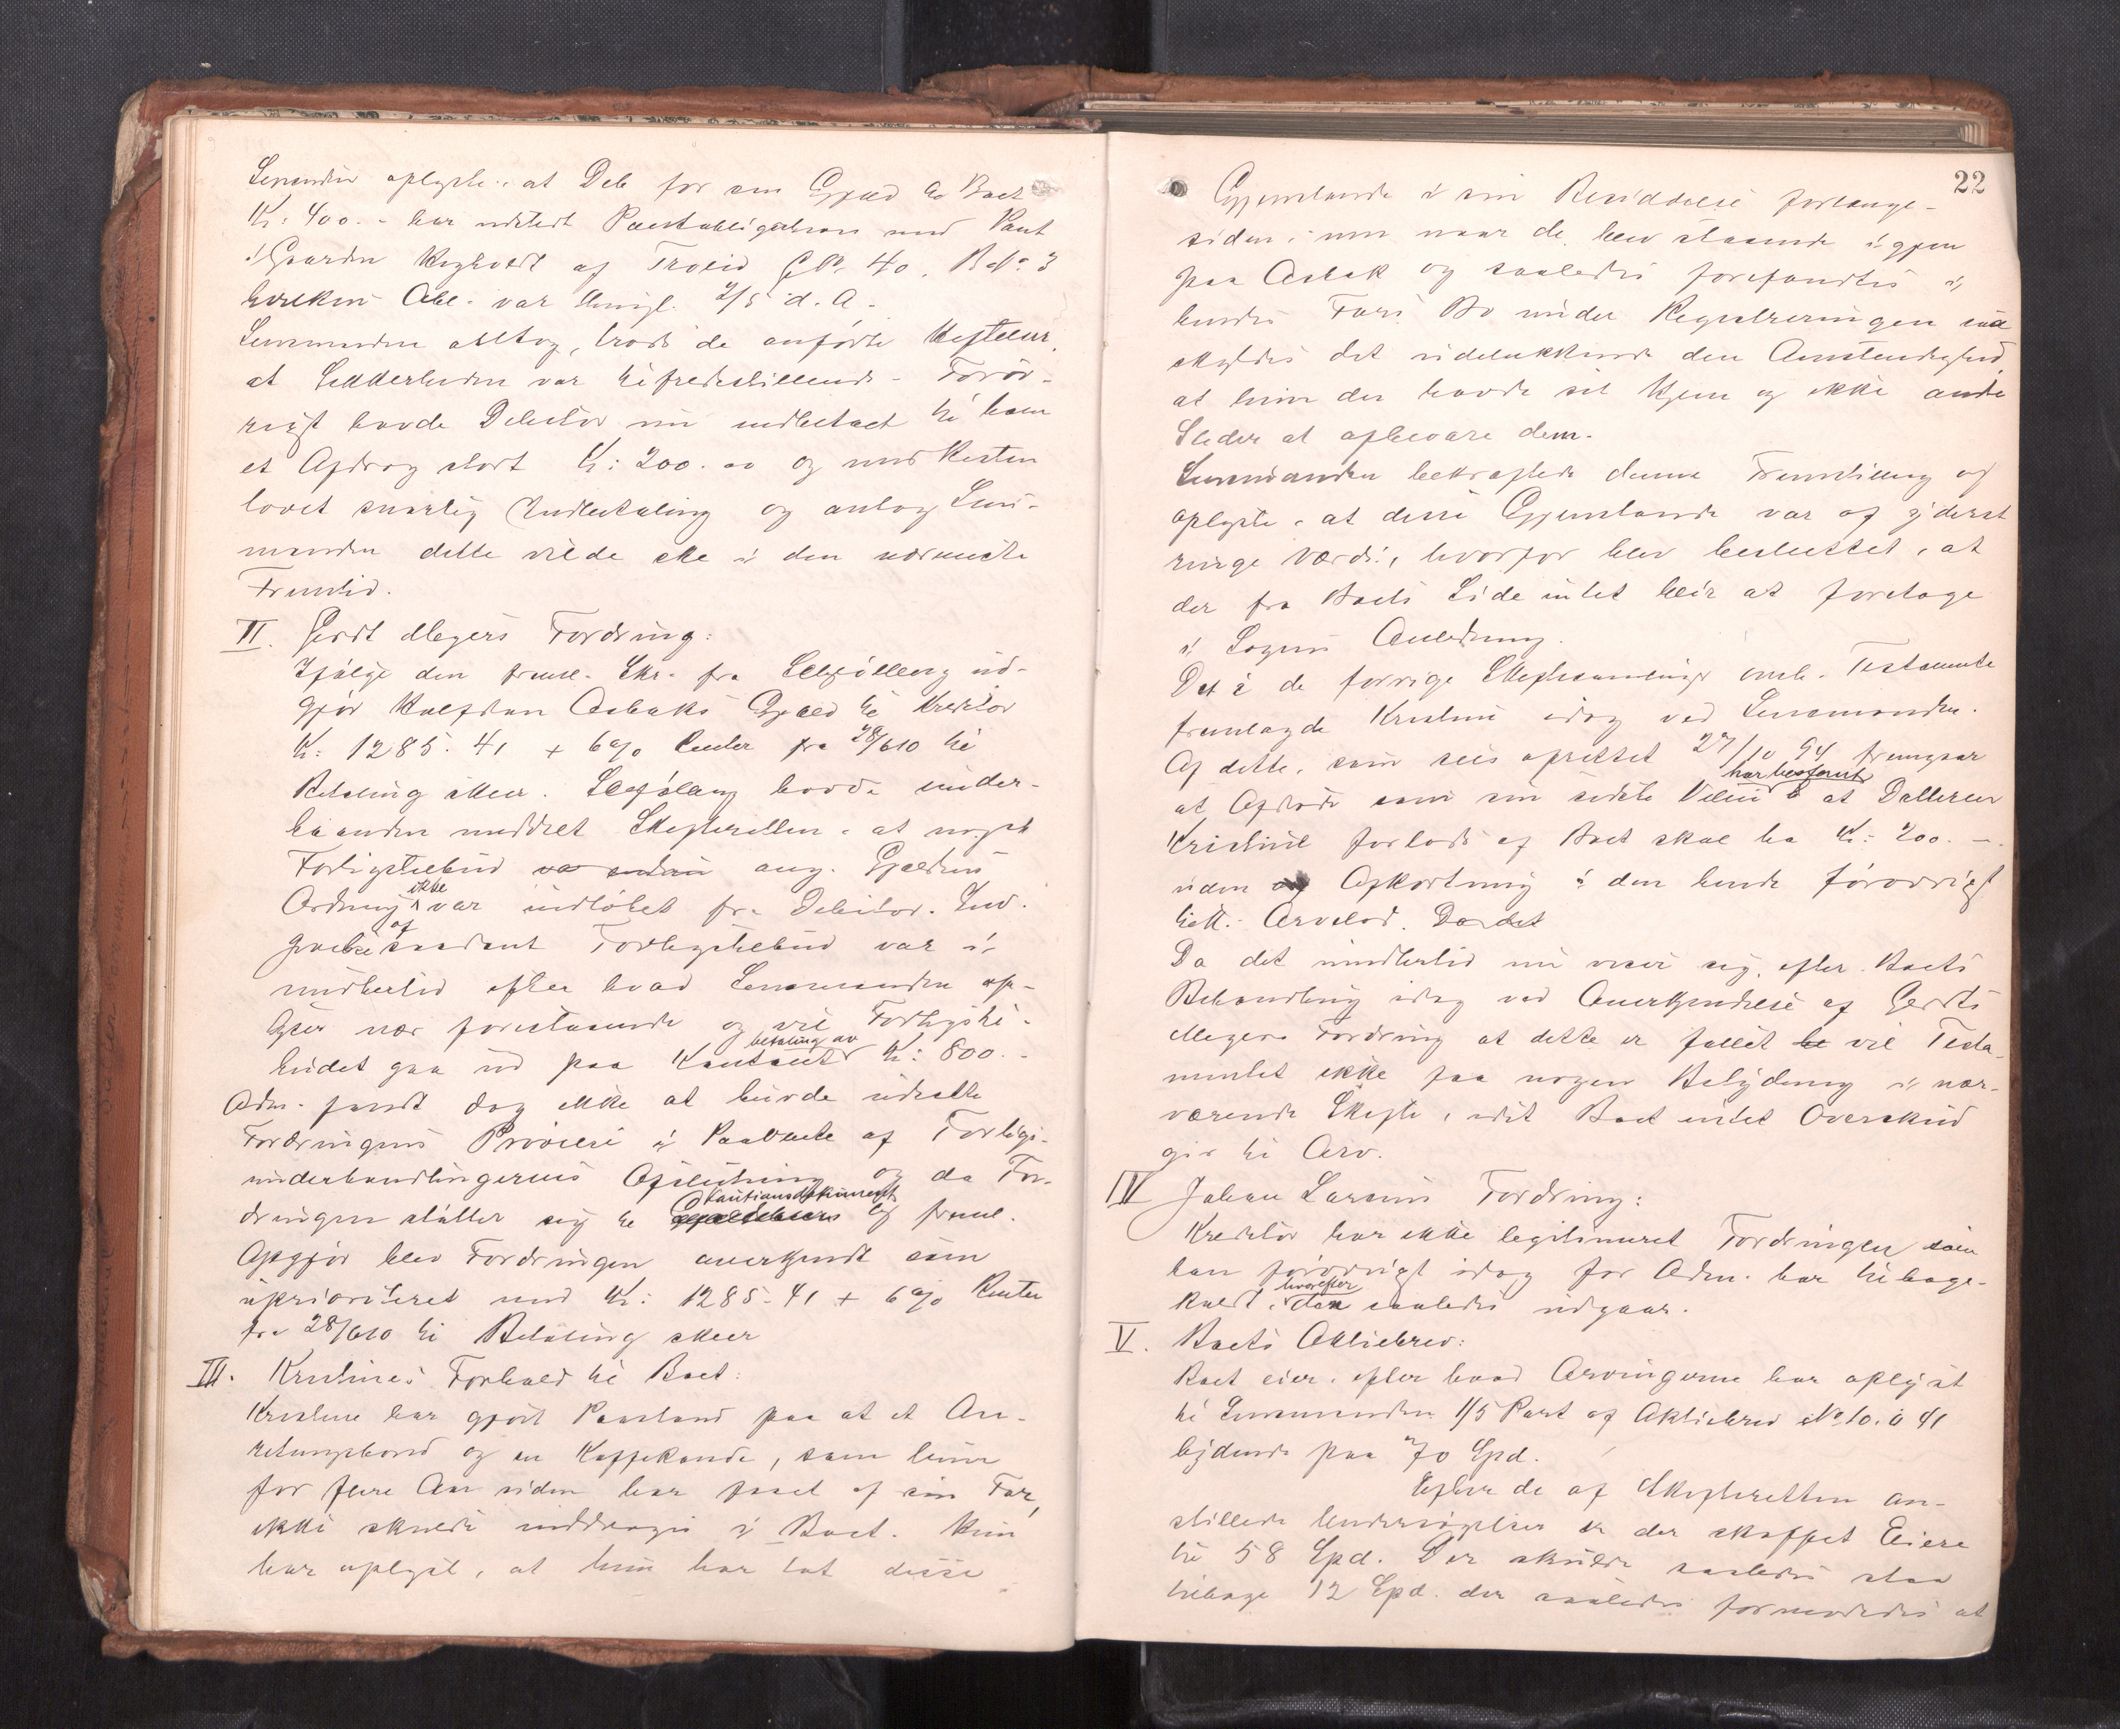 Lensmanden oplyste, at Deb. for sin Gjæld til Boet
Kr: 400.- har utstedt Panteobligation med Pant
i Gaarden Røghvedt af Troeid G.No. 40. B.No. 3
hvilken Obl. var thingl. 2/5 d. A.
Lensmanden antog, trods de anførte Heftelser,
at Sikkerheden var tilfredsstillende. Forøv-
rigt havde Debitor nu indbetalt til ham
et Afdrag stort Kr: 200.00 og med Resten
lovet snarlig Indbetaling og antog Lens-
manden dette vilde ske i den nærmeste
Fremtid.
II. Gerdt Meyers Fordring:
Ifølge den freml. Skr. fra Selfjølberg ud-
gjør Halfdan Aabaks Gjæld til Kreditor
Kr: 1285.41 + 6 % Renter fra 28/6 10 til
Betaling skeer. havde under-
haanden meddelt Skifteretten, at noget
Forligstilbud var endnu ang. Gjældens
Ordning ikke var indløbet fra Debitor. Ind-
givelse af saadant Forligstilbud var i-
midlertid efter hvad Lensmanden op-
lyser nær forestaaende og vil Forligstil-
budet gaa ud paa Kontant betaling av Kr: 800.-
Adm. fandt dog ikke at burde udsætte
Fordringens Prøvelse i Paavente af Forligs-
underhandlingernes Afslutning og da For-
dringen støtter sig til Kautionsdokument og freml.
Opgjør blev Fordringen anerkjendt som
uprioriteret med Kr: 1285.41 + 6 % Renter
fra 28/6 10 til Betaling skeer
III. Kristines Forhold til Boet:
Kristine har gjort Paastand paa at et An-
retningsbord og en Kaffekande, som hun
for flere Aar siden har faaet af sin Far,
ikke skulde inddrages i Boet. Hun
har oplyst, at hun har tat disse
22
Gjenstande i sin Besiddelse forlænge-
siden; men naar de blev staaende igjen
paa Aabak og saaledes forefandtes i
hendes Fars Bo under Registreringen saa
skyldes det udelukkende den Omstændighed
at hun der havde sit Hjem og ikke andre
Steder at opbevare dem.
Lensmanden bekræftede denne Fremstilling og
oplyste, at disse Gjenstande var af yderst
ringe Værdi, hvorfor blev besluttet, at
der fra Boets Side intet blir at foretage
i Sagens Anledning.
Det i de forrige Skiftesamlinger omh. Testamente
fremlagde Kristine idag ved Lensmanden.
Af dette, som sees oprettet 27/10 94 fremgaar
at Afdøde som sin sidste Villie har bestemt at Datteren
Kristine forlods af Boet skal ha Kr: 200.-
uden Afkortning i den hende forøvrigt
tilk. Arvelod. Da det
Da det imidlertid nu viser sig, efter Boets
Behandling idag ved Anerkjendelse af Gerdts
Meyers Fordring at dette er fallit vil Testa-
mentet ikke faa nogen Betydning i nær-
værende Skifte, idet Boet intet Overskud
gir til Arv.
IV Johan Larsens Fordring:
Kreditor har ikke legitimeret Fordringen som
han forøvrigt idag for Adm. har tilbage-
kaldt, hvorefter den saaledes udgaar.
V. Boets Aktiebrev:
Boet eier, efter hvad Arvingerne har oplyst
til Lensmanden 1/5 Part af Aktiebrev No 10. à 41
lydende paa 70 Spd.
Efter de af Skifteretten an-
stillede Undersøgelser er der skaffet Eiere
til 58 Spd. Der skulde saaledes staa
tilbage 12 Spd. der saaledes formodedes at